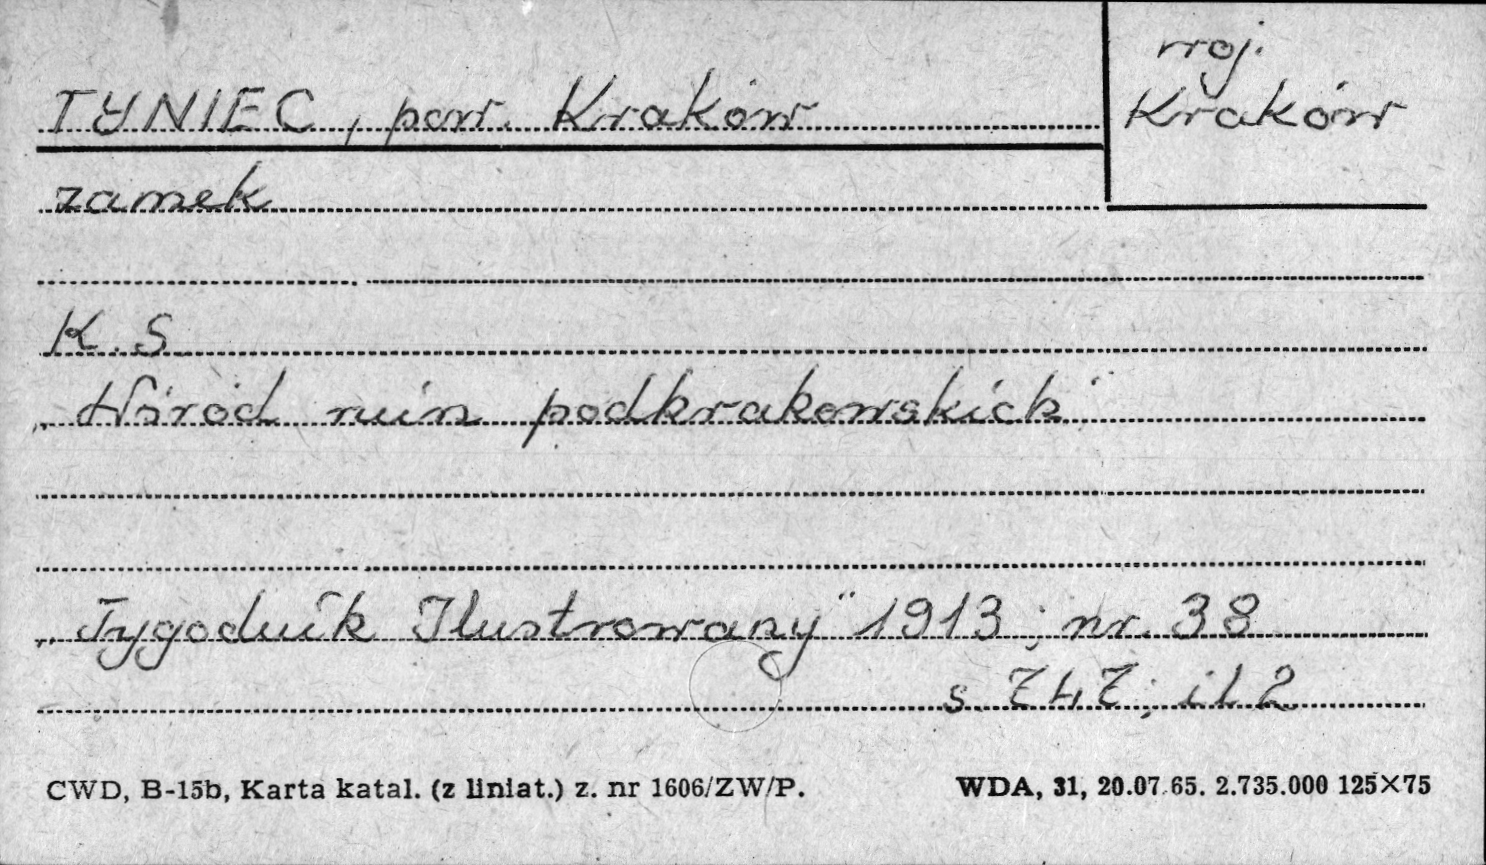 TYNIEC, pow. Kraków
woj.
Kraków
zamek
K. S.
„Wśród ruin podkrakowskich"
„Tygodnik Ilustrowany" 1913; nr. 38
s. 747; il 2
CWD, B-15b, Karta katal. (z liniat.) z. nr 1606/ZW/P.
WDA, 31, 20.07.65. 2.735.000 125×75